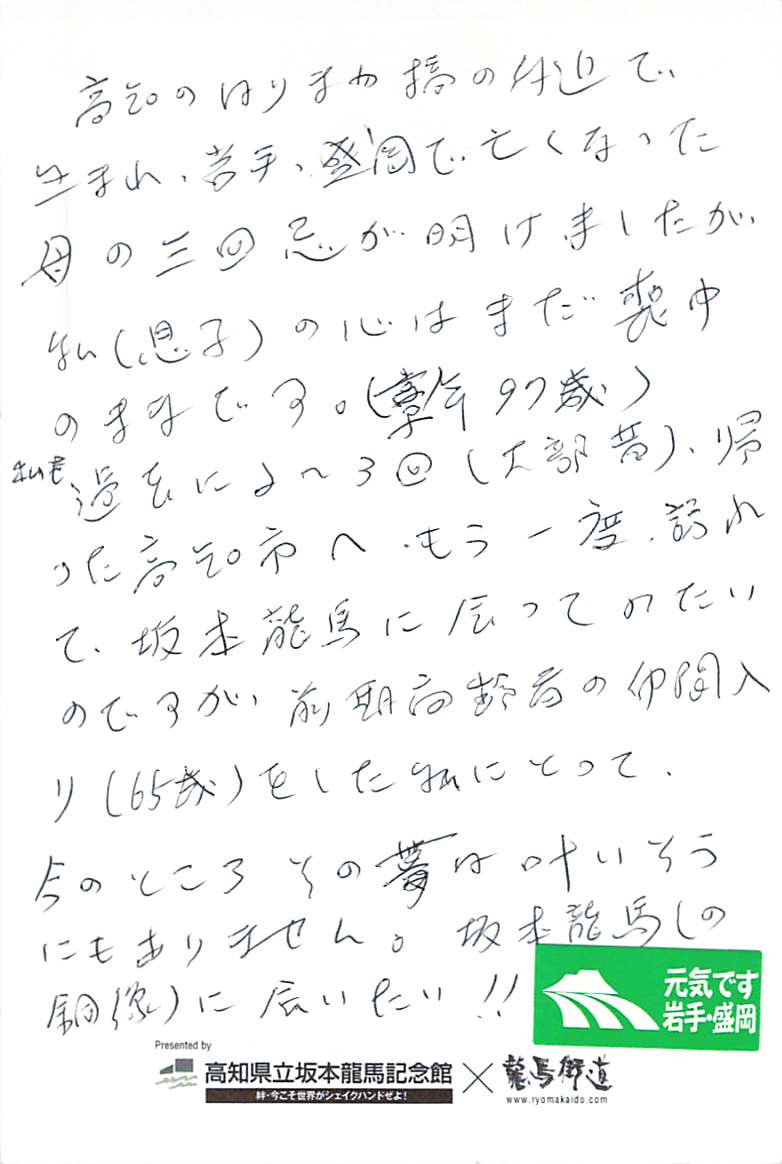 高知のはりまや橋の付近で、
生まれ、岩手、盛岡で、亡くなった
母の三回忌が明けましたが、
私(息子)の心はまだ喪中
のままです。(享年97歳)
私も過去に2〜3回(大部昔)、帰
った高知市へ、もう一度、訪れ
て、坂本龍馬に会ってみたい
のですが、前期高齢者の仲間入
り(65歳)をした私にとって、
今のところその夢は叶いそう
にもありません。坂本龍馬(の
銅像)に会いたい!!
元気です
岩手・盛岡
Presented by
高知県立坂本龍馬記念館×龍馬街道
絆・今こそ世界がシェイクハンドぜよ!
www.ryomakaido.com